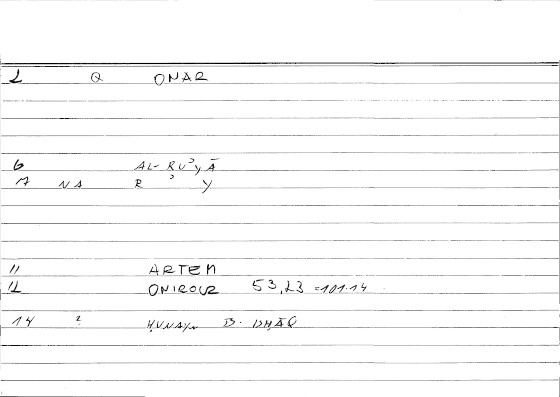 1 Q ONAR
6 AL-RUʾYĀ
NA R ʾ Y
11 ARTEM
12 ONIROCR 53,23 =101.14
14 2 ḤUNAYN B. ISḤĀQ